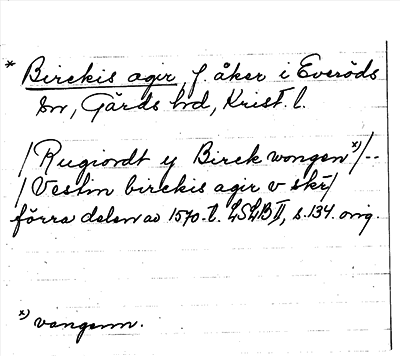 * Birckis agir, f. åker i Everöds
sn, Gärds hd, Krist. l.
/Rugiordt y Birck wongen x)/--
/Vestin birckis agir v skr/
förra delen av 1570-t. LSLB II, s. 134. orig.
x) vangenn.